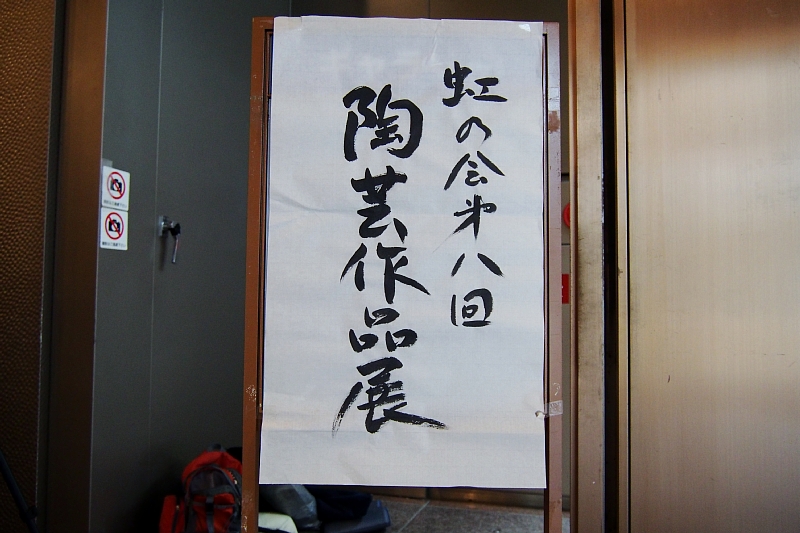 虹の会第八回
陶芸作品展